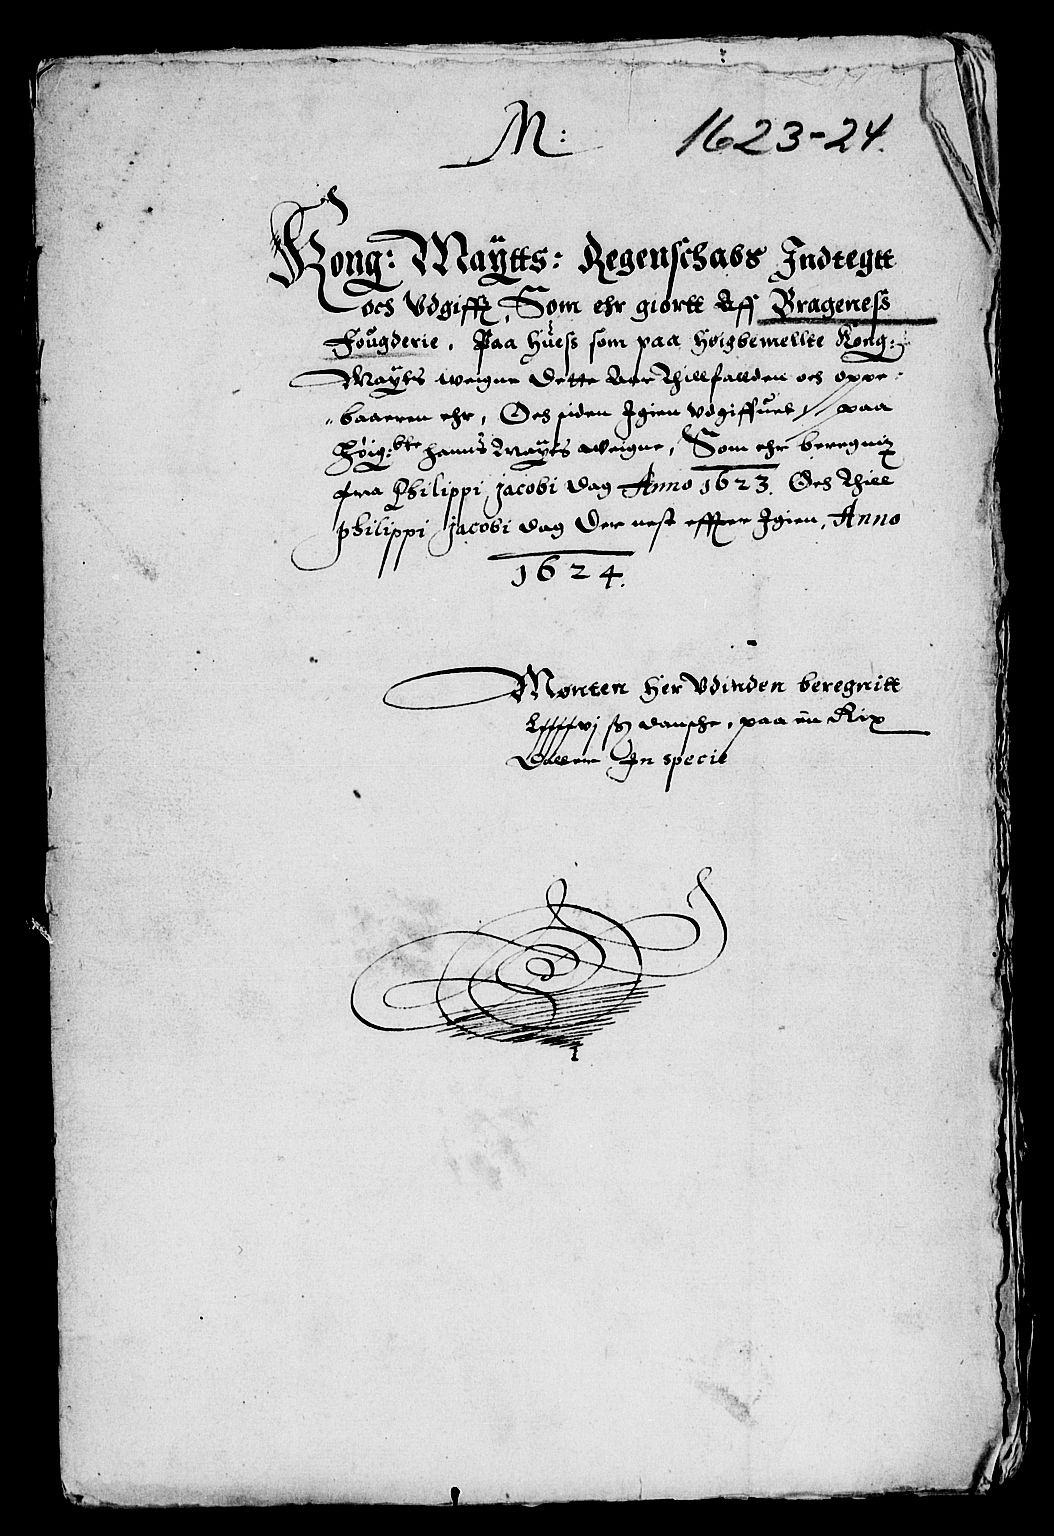 M: 1623-24.
Kong: Maÿtts: Regenschabs Indtegtt
och Vdgifft, Som ehr giortt Aff Brageness
Fougderie, Paa huess som paa høigbemellte Kong:
Maÿts weigne dette Aar thillfallden och oppe=
=baaeren ehr, Och siden Igien vdgiffuet, paa
Høig:bte hanns Maÿts weigne, Som ehr beregnit
fra Philippi Jacobi dag Anno 1623. Och thill
Philippi Jacobi dag der nest effter Igien, Anno
1624.
Mønten her Vdinden beregnitt
danske, paa en Rix
daller In specie